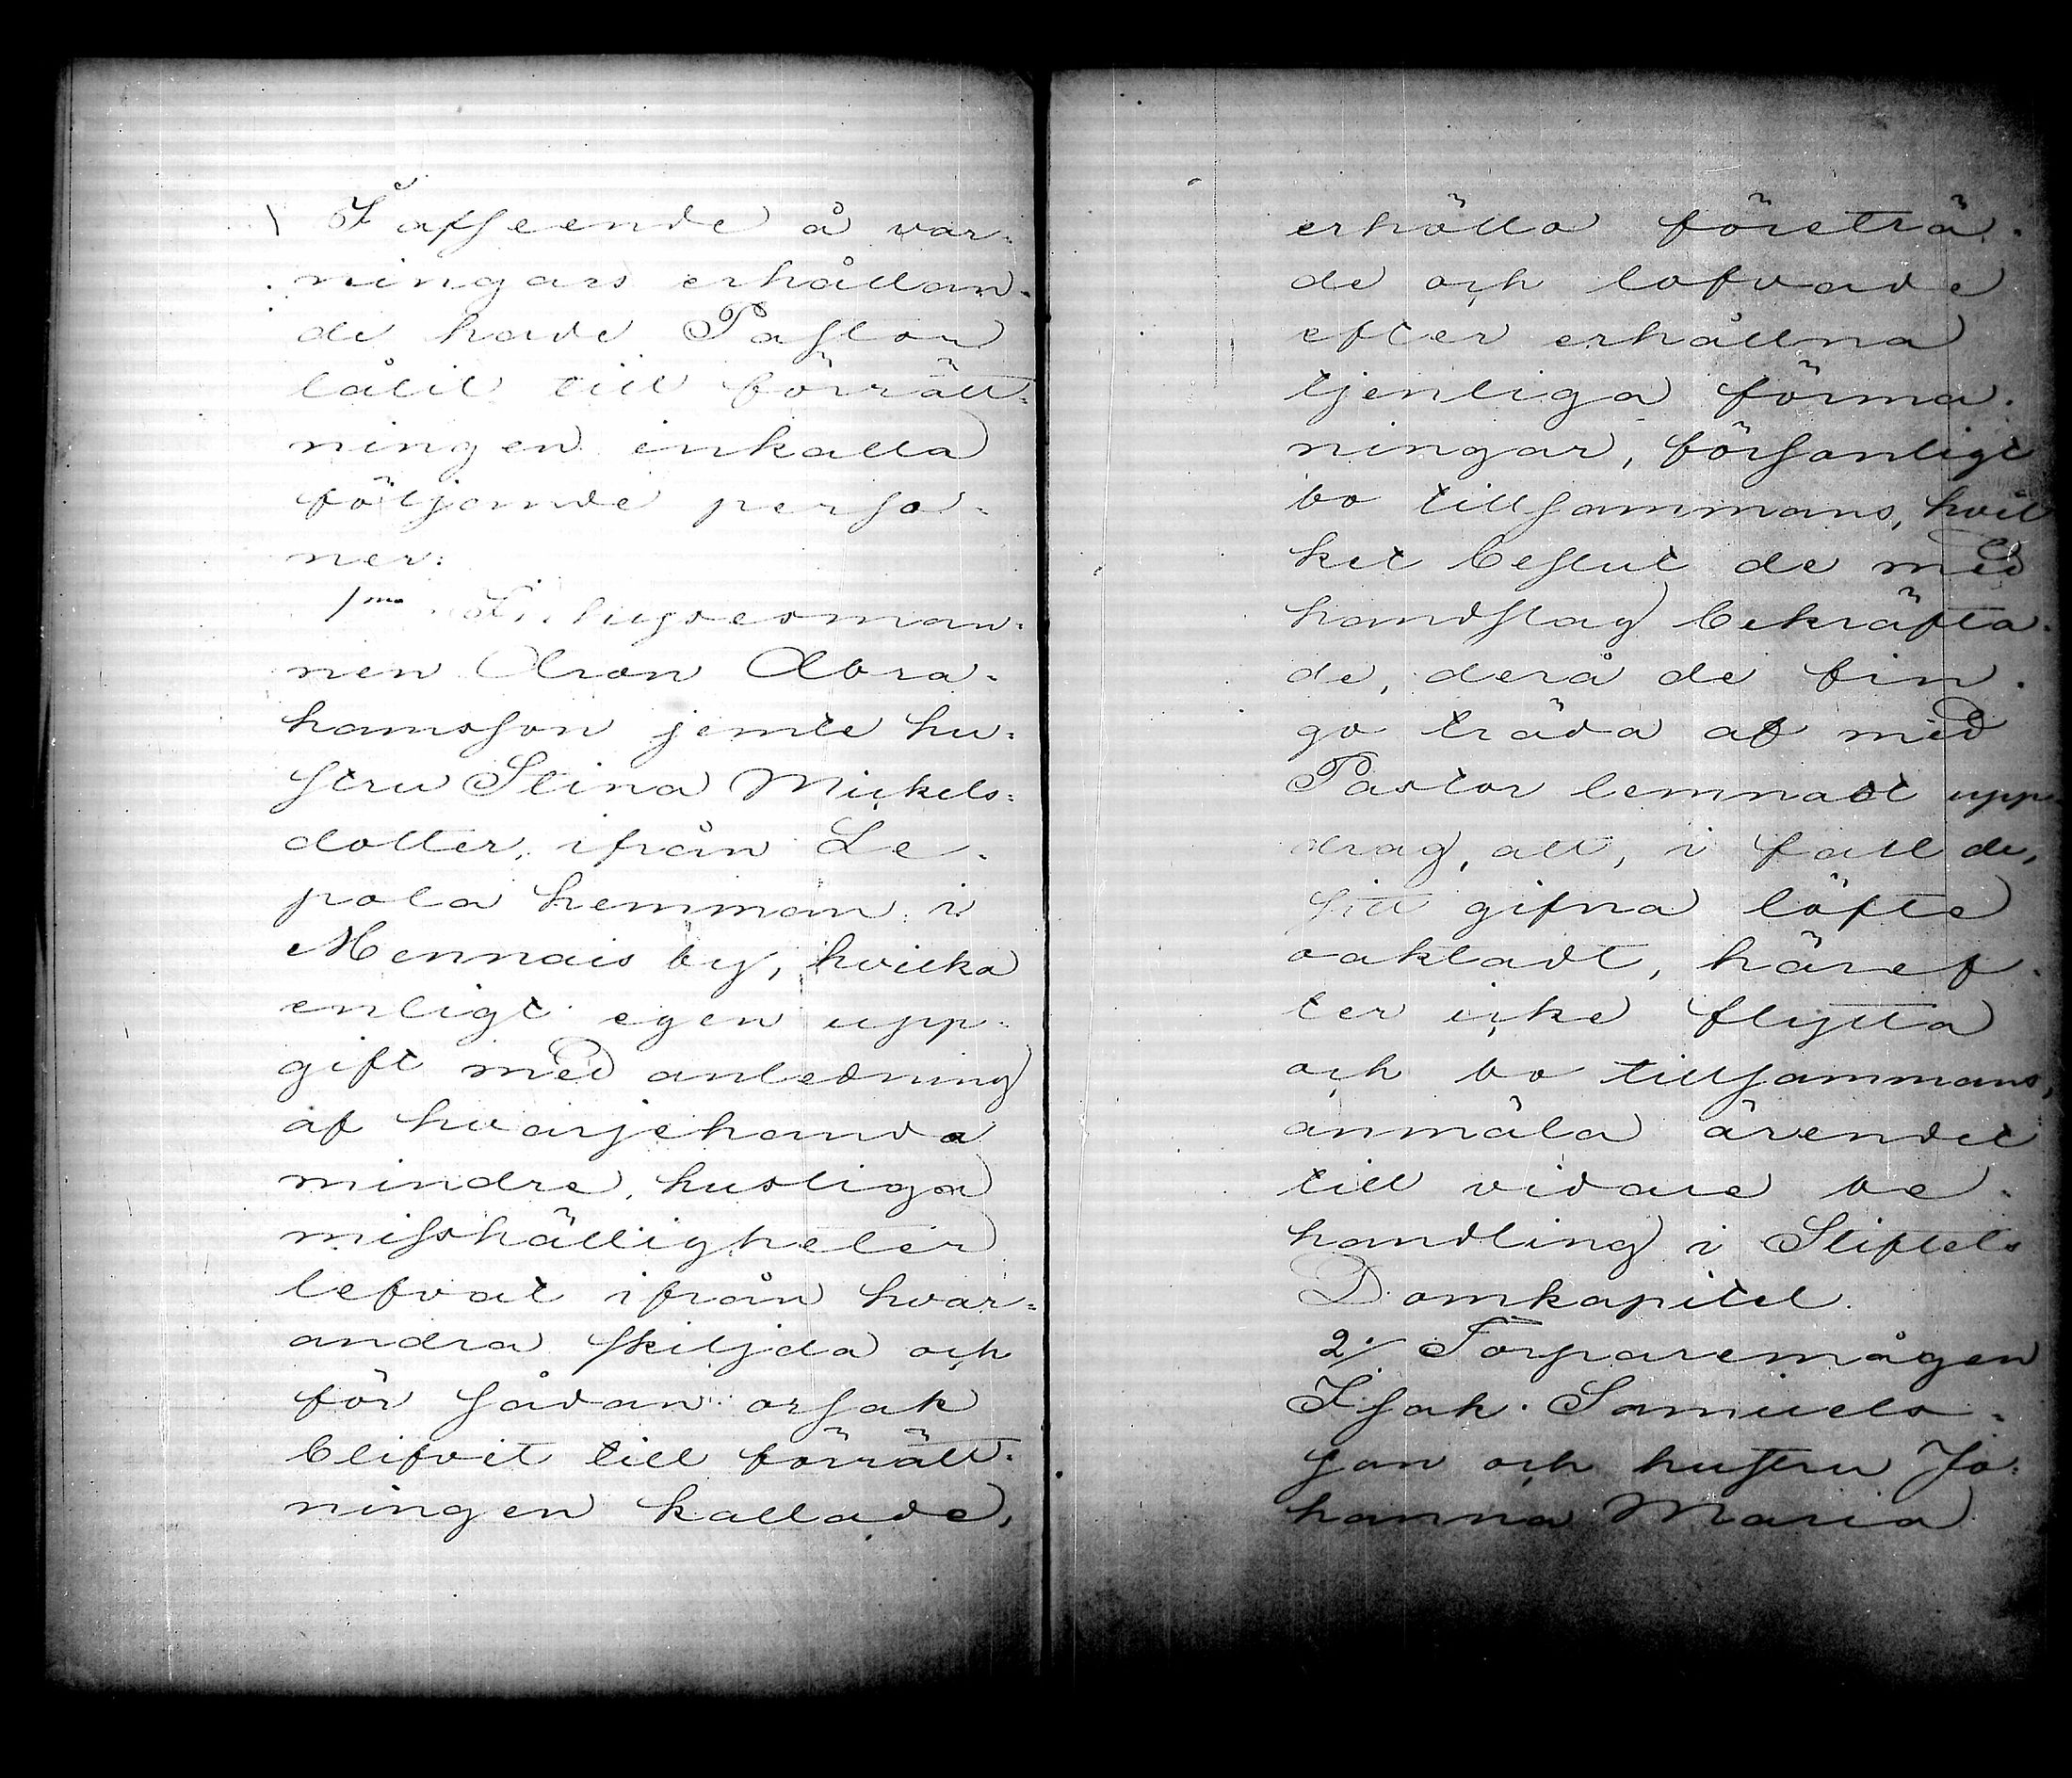 I afseende å var-
ningars erhållan-
de hade Pastor
låtit till förrätt-
ningen inkalla
följande perso-
ner:
1mo Inhysesman-
nen Aron Abra-
hamsson jemte hu-
stru Stina Mickels-
dotter, ifrån Le-
pola hemman i
Mennais by, hvilka
enligt egen upp-
gift med anledning
af hvarjehanda
mindre, husliga
misshälligheter
lefvat ifrån hvar-
andra skiljda och
för sådan orsak
blifvit till förrätt-
ningen kallade,
erhöllo företrä-
de och lofvade
efter erhållna
tjenliga förma-
ningar, försonligt
bo tillsammans, hvil
ket beslut de med
handslag bekräfta-
de, derå de fin-
go träda af med
Pastor lemnadt upp
drag, att, i fall de,
sitt gifna löfte
oaktadt, häref-
ter icke flytta
och bo tillsammans,
anmäla ärendet
till vidare be-
handling i Stiftets
Domkapitel.
2/ Torparemågen
Isak Samuels-
son och hustru Jo-
hanna Maria